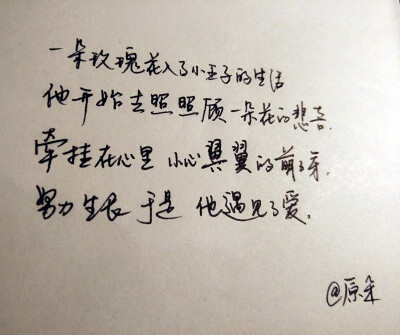 一朵玫瑰花入了小王子的生活
他开始去照照顾一朵花的悲喜.
牵挂在心里 小心翼翼的萌了芽.
努力生长 于是 他遇见了爱.
@原朵